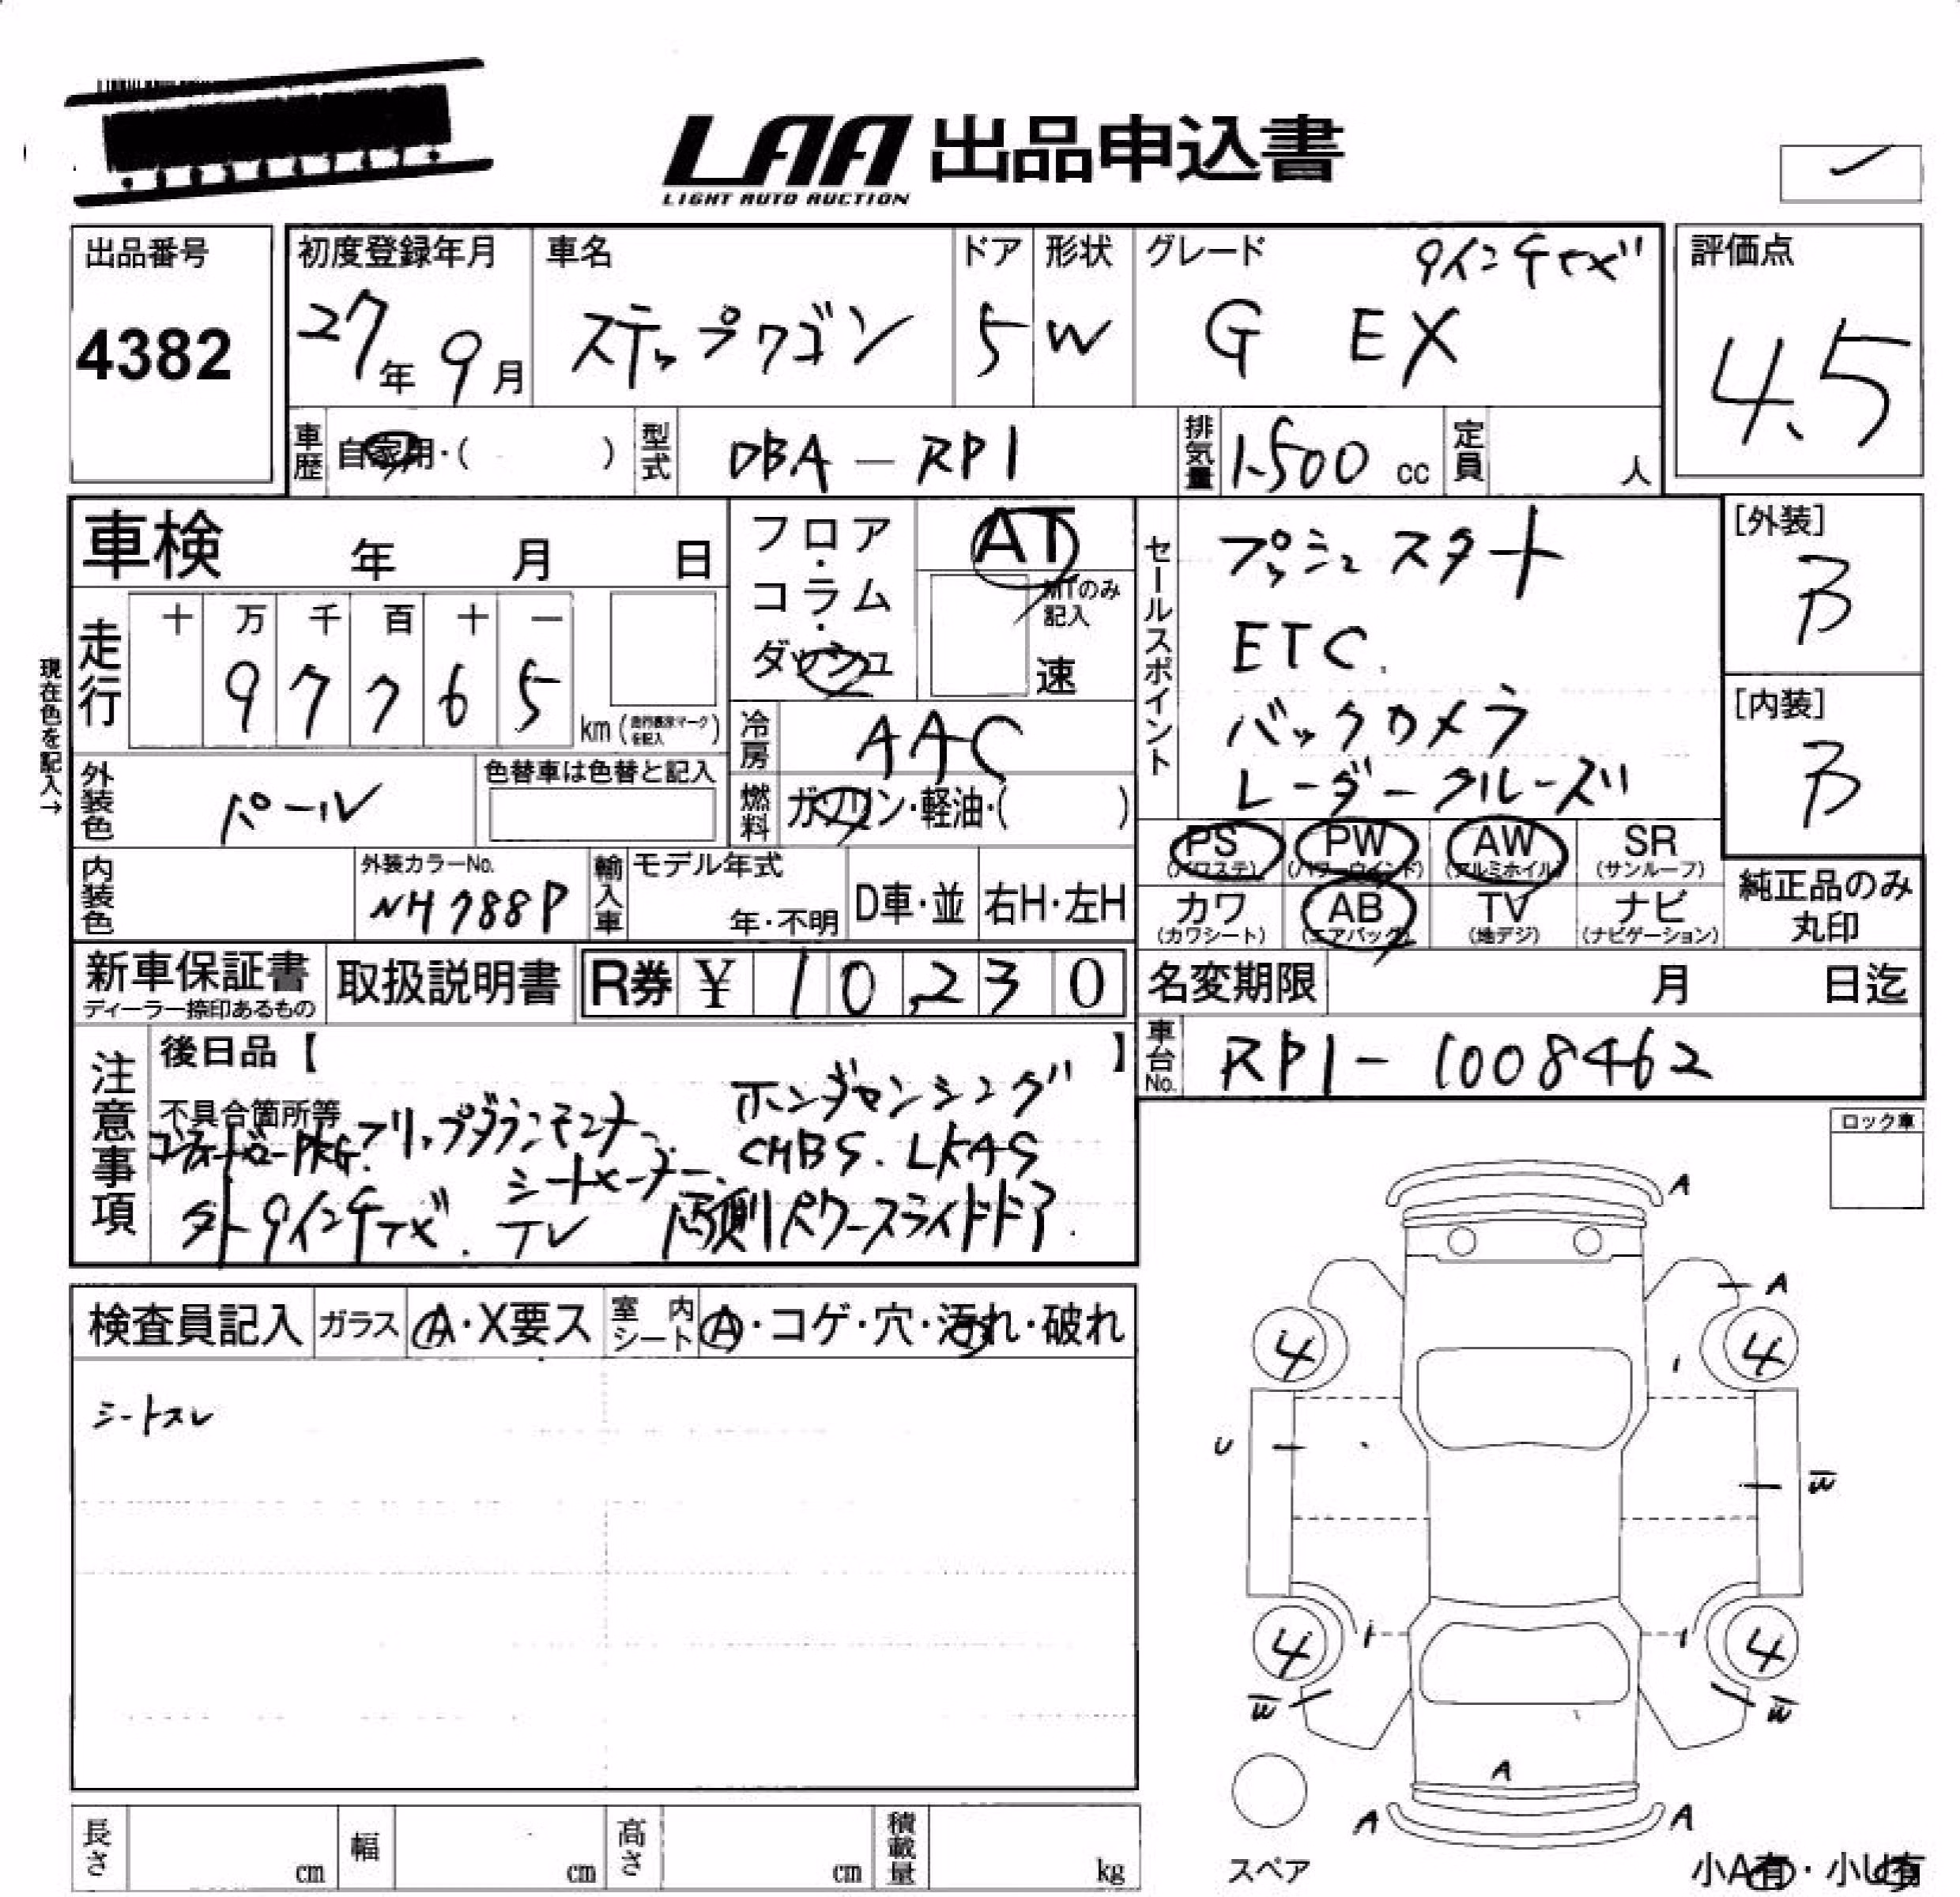 LAA 出品申込書
LIGHT AUTO AUCTION
出品番号
4382
初度登録年月
27年 9月
車名
ステップワゴン
ドア
5
形状
W
グレード
9インチナビ
G EX
評価点
4.5
車歴
自家用・( )
型式
DBA-RP1
排気量
1500 cc
定員
人
車検 年 月 日
現在色を記入→
走行
十 万 千 百 十 一
9 7 7 6 5
km (走行概況マーク を記入)
フロア・コラム・ダッシュ
AT
MTのみ記入
速
冷房
AAC
燃料
ガソリン・軽油・( )
外装色
パール
色替車は色替と記入
内装色
外装カラーNo.
NH788P
輸入車
モデル年式
年・不明
D車・並
右H・左H
セールスポイント
プッシュスタート
ETC.
バックカメラ
レーダークルーズ
[外装]
B
[内装]
B
PS
(パワステ)
PW
(パワーウインド)
AW
(アルミホイル)
SR
(サンルーフ)
カワ
(カワシート)
AB
(エアバッグ)
TV
(地デジ)
ナビ
(ナビゲーション)
純正品のみ
丸印
新車保証書
ディーラー捺印あるもの
取扱説明書
R券 ¥ 10,230
名変期限 月 日迄
車台No.
RP1-1008462
注意事項
後日品【 】
不具合箇所等
ホンダセンシング
PKG. フリップダウンモニター.
CMBS. LKAS
シートヒーター.
外9インチナビ. TV 両側パワースライドドア.
ロック車
検査員記入
ガラス
A・X要ス
室内シート
A・コゲ・穴・汚れ・破れ
シートスレ
A
A
4 4
U
W
4 4
W W
A
A A
スペア
小A有・小U有
長さ cm
幅 cm
高さ cm
積載量 kg